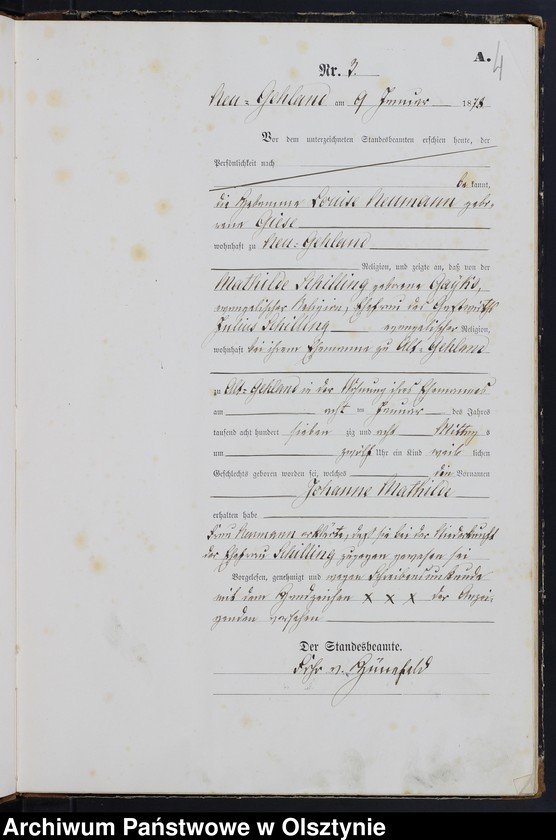 A. 4
Nr. 3
Neu-Gehland am 9 Januar 1878
Vor dem unterzeichneten Standesbeamten erschien heute, der
Persönlichkeit nach
bekannt,
die Hebamme Louise Neumann gebo-
rene Giese
wohnhaft zu Neu-Gehland
Religion, und zeigte an, daß von der
Mathilde Schilling geborene
evangelischer Religion, Ehefrau des Gastwirth
Julius Schilling evangelischer Religion,
wohnhaft bei ihrem Ehemanne zu Alt-Gehland
zu Alt-Gehland in der Wohnung ihres Ehemannes
am acht ten Januar des Jahres
tausend acht hundert sieben zig und acht Mittag s
um zwölf Uhr ein Kind weib lichen
Geschlechts geboren worden sei, welches den Vornamen
Johanne Mathilde
erhalten habe
Frau Neumann erklärte, daß sie bei der Niederkunft
der Ehefrau Schilling zugegen gewesen sei
Vorgelesen, genehmigt und wegen Schreibensunkunde
mit dem Handzeichen x x x der Anzei-
genden versehen
Der Standesbeamte.
Frhr v.
Archiwum Państwowe w Olsztynie